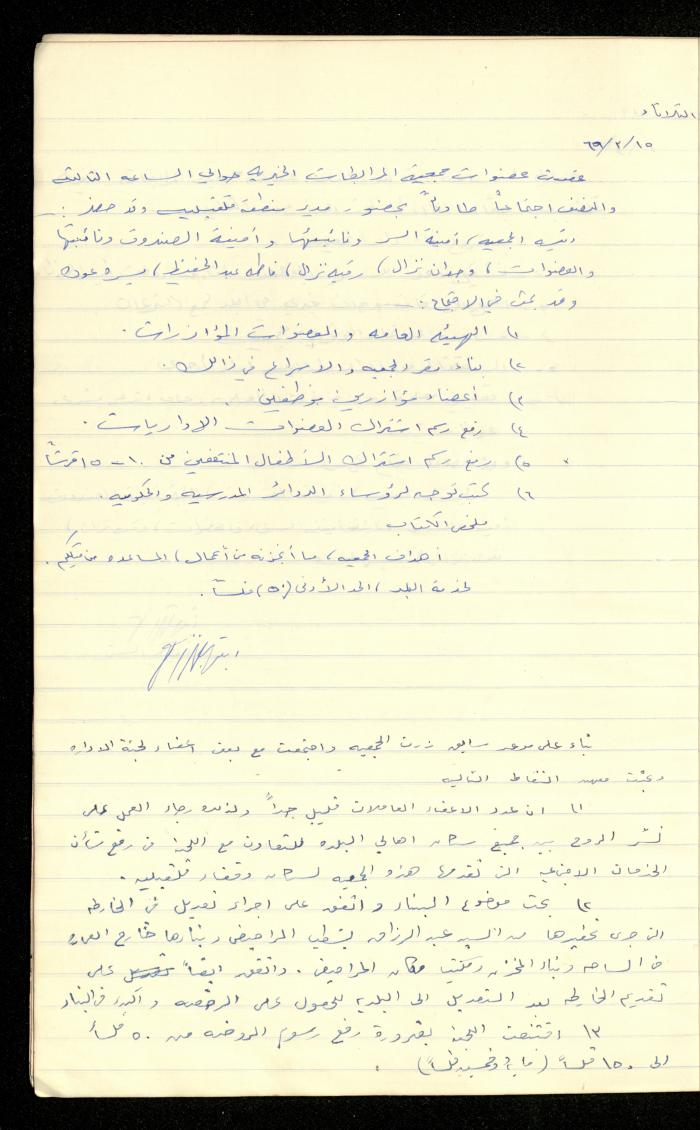 الثلاثاء
٦٩/٢/١٥
عقدت عضوات جمعية المرابطات الخيريه حوالي الساعه الثالثه
والنصف اجتماعاً طارئاً بحضور مدير منطقة قلقيليه وقد حضر :
رئيسة الجمعيه، أمينة السر ونائبتها وأمينة الصندوق ونائبتها
والعضوات، وجدان نزال، رقيه نزال، فاطمه عبد الحفيظ، يسره عوده
وقد بحث في الاجتماع :
١) الهيئه العامه و العضوات المؤازرات .
٢) بناء مقر الجمعيه والاسراع في ذالك .
٣) أعضاء مؤازرين موظفين
٤) رفع رسم اشتراك العضوات الاداريات .
٥) رفع رسم اشتراك الأطفال المنتفعين من ١٠ - ١٥ قرشاً
٦) كتب توجه لرؤساء الدوائر المدرسيه والحكوميه .
ملخص الكتاب
أهداف الجمعيه، ما أنجزته من أعمال، المساعده من قبلكم .
لخدمة البلد، الحد الأدنى (٥٠) فلساً .
بناء على موعد سابق زرت الجمعيه واجتمعت مع بعض اعضاء لجنة الاداره
وبحثت معهن النقاط التاليه
١) ان عدد الاعضاء العاملات قليل جداً ولذلك رجاء العمل على
نشر الروح بين جميع سكان اهالي البلده للتعاون مع اللجنة في رفع شأن
الخدمات الاجتماعيه التي تقدمها هذه الجمعيه لسكان وقضاء قلقيليه .
٢) بحث موضوع البناء واتفق على اجراء تعديل في الخارطه
التي جرى تحضيرها من السيد عبد الرزاق بشطب المراحيض وبنائها خارج العماره
في الساحه وبناء المخزن ومكتب مكان المراحيض . واتفق ايضاً على
تقديم الخارطه بعد التعديل الى البلديه للحصول على الرخصه و في البناء
٣) اقتنعت اللجنة بضرورة رفع رسوم الروضه من ٥٠ فلساً
الى ١٥٠ فلساً (ماية وخمسين فلساً) .